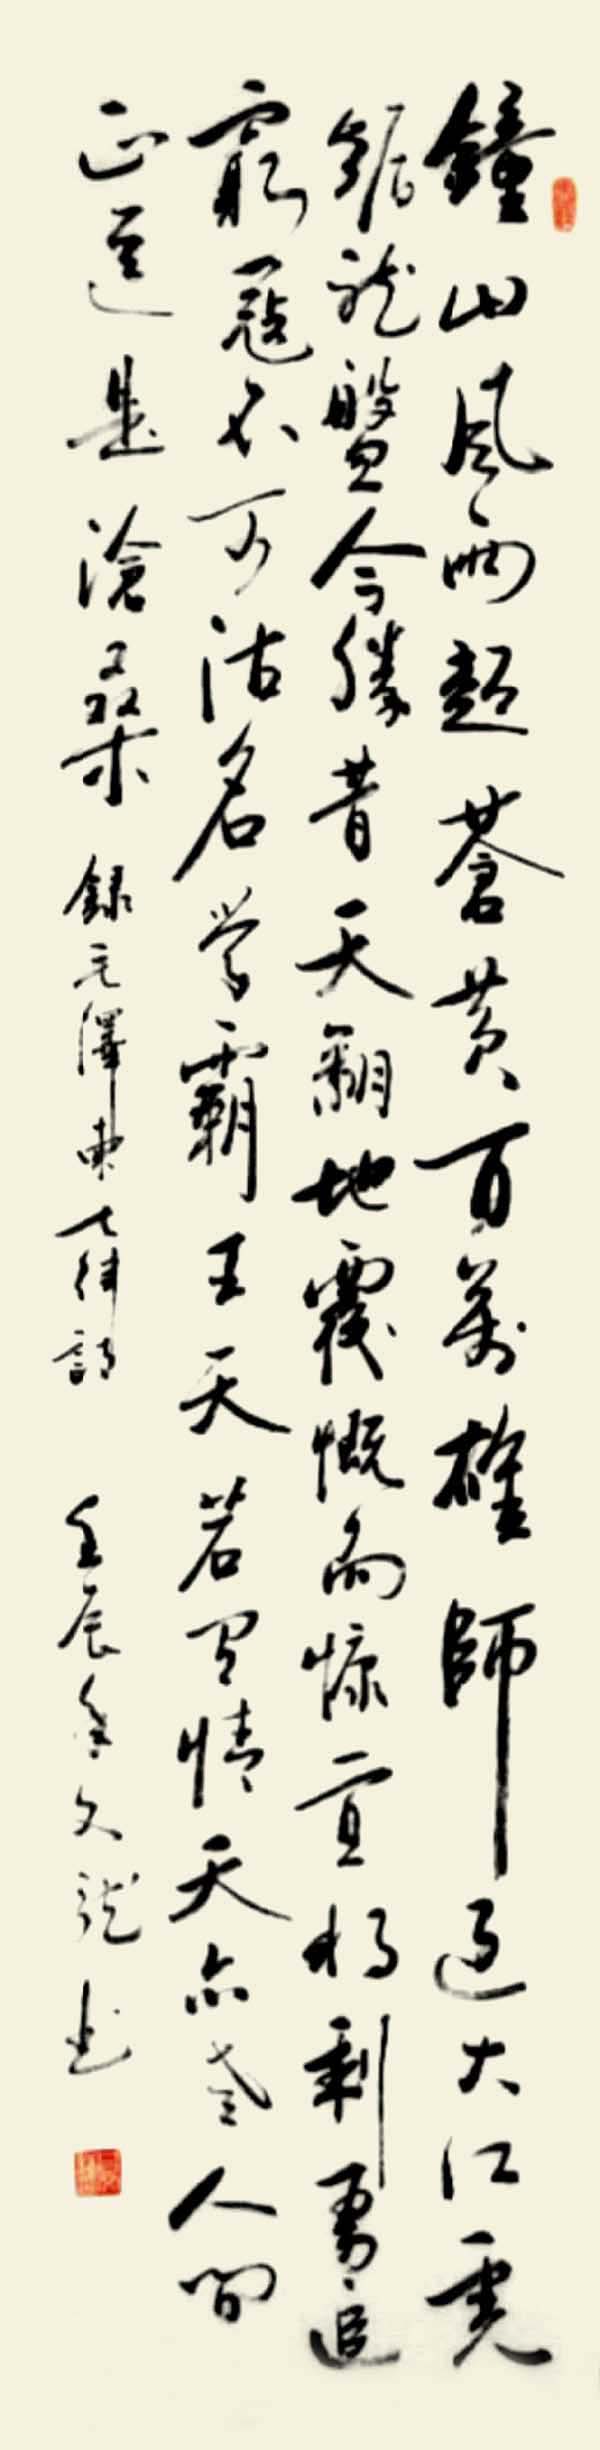 鐘山風雨起蒼黃百萬雄師過大江虎
踞龍盤今勝昔天翻地覆慨而慷宜將剩勇追
窮寇不可沽名學霸王天若有情天亦老人間
正道是滄桑 錄毛澤東七律詩 壬辰冬文龍書